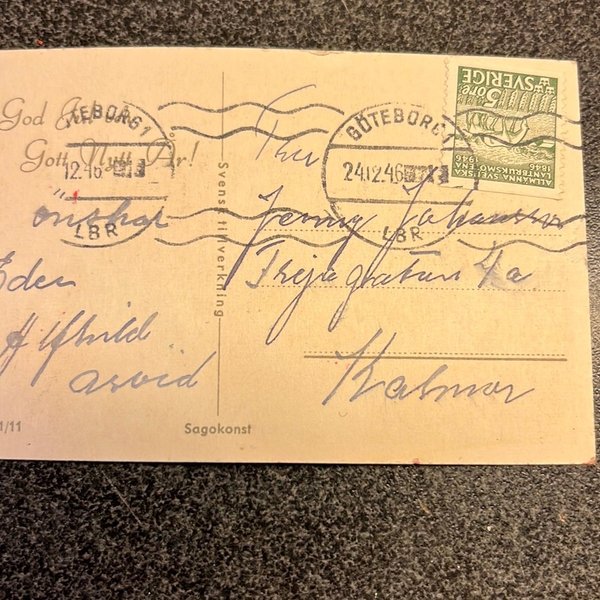 God Jul
Gott Nytt År!
önskar
Eder
Alfhild
Arvid
1/11
Svensk tillverkning
Sagokonst
TEBORG 1
12.46
LBR
GÖTEBORG 1
24.12.46
LBR
5 öre
SVERIGE
ALLMÄNNA SVENSKA
LANTBRUKSMÖTEN
1846 1946
Frk
Jenny Johansson
Frejagatan 4a
Kalmar